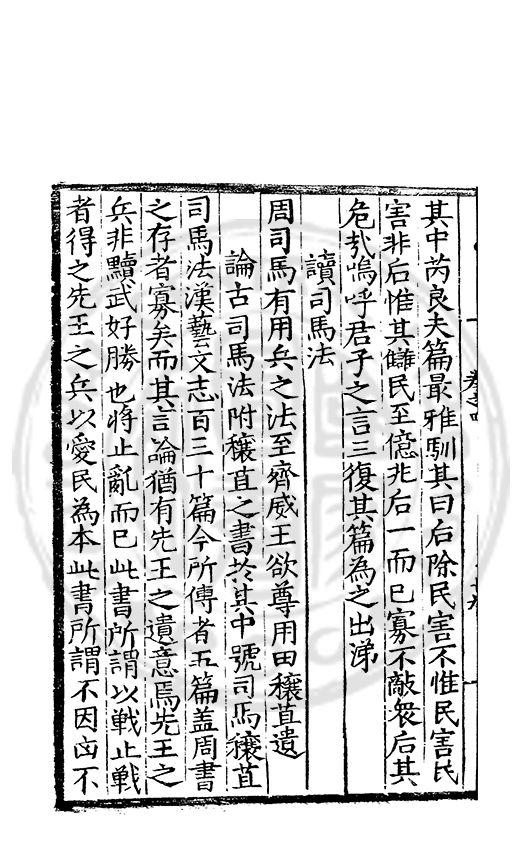 其中芮良夫篇最雅馴其曰后除民害不惟民害民
害非后惟其讎民至億兆后一而已寡不敵衆后其
危㢤嗚呼君子之言三復其篇為之出涕
讀司馬法
周司馬有用兵之法至齊威王欲尊用田穰苴遺
論古司馬法附穰苴之書於其中號司馬穰苴
司馬法漢藝文志百三十篇今所傳者五篇盖周書
之存者寡矣而其言論猶有先王之遺意焉先王之
兵非黷武好勝也將止亂而已此書所謂以戰止戰
者得之先王之兵以愛民為本此書所謂不因凶不